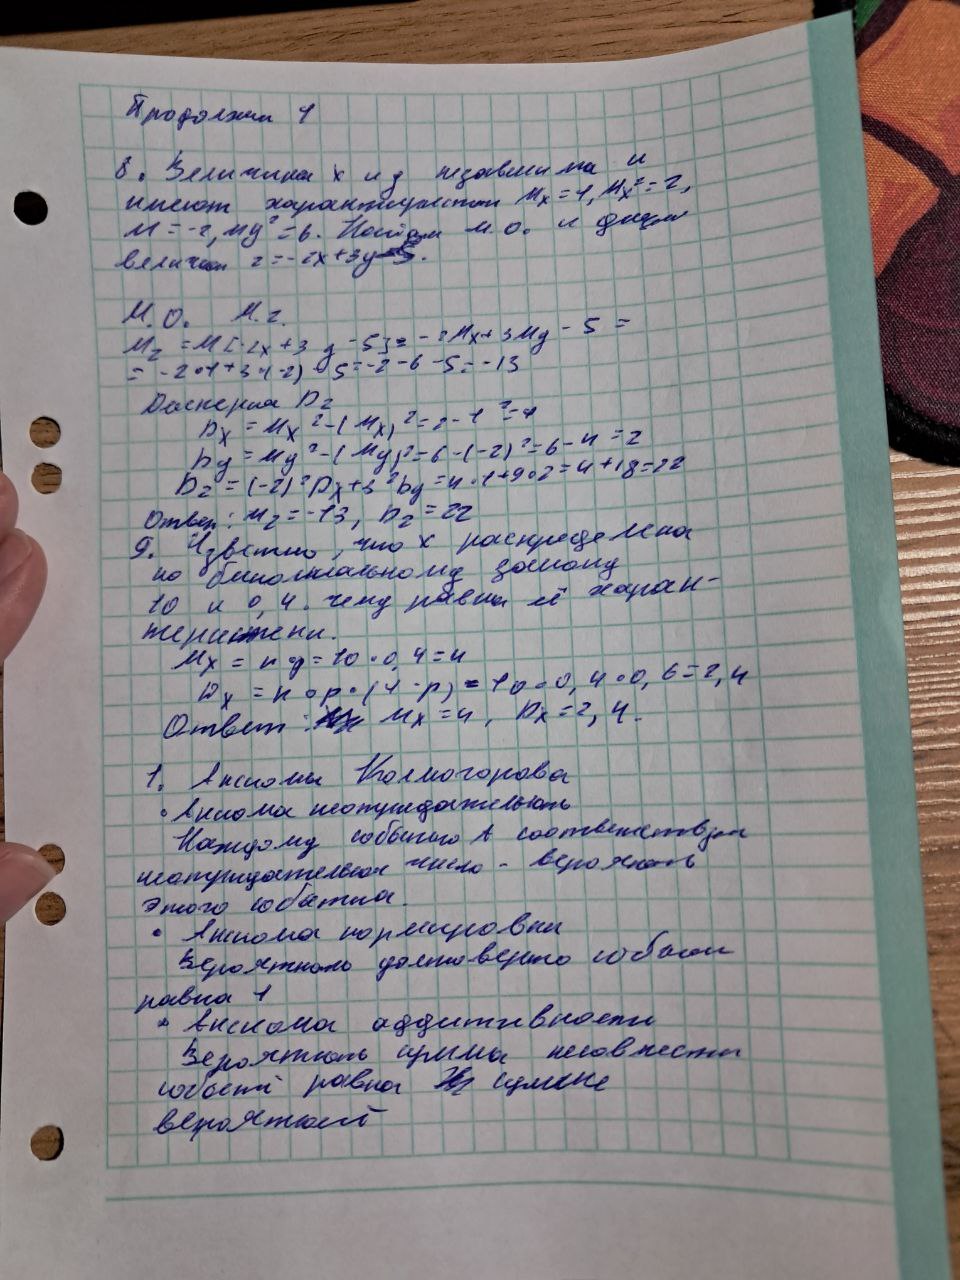 Продолжил 1
8. Величина x и y независима и
имеют характеристики Mx = 1, Mx² = 2,
M = -2, My² = 6. Найдем м.о. и дисп
величин z = -2x + 3y - 5.
М.О. M.z.
Mz = M[-2x + 3y - 5] = -2Mx + 3My - 5 =
= -2•1 + 3•(-2) - 5 = -2 - 6 - 5 = -13
Дисперсия Dz
Dx = Mx² - (Mx)² = 2 - 1² = 1
Dy = My² - (My)² = 6 - (-2)² = 6 - 4 = 2
Dz = (-2)²Dx + 3²Dy = 4•1 + 9•2 = 4 + 18 = 22
Ответ: Mz = -13, Dz = 22
9. Известно, что x распределена
по биномиальному закону
10 и 0,4. чему равны её харак-
теристики.
Mx = n = 10•0,4 = 4
Dx = n•p•(1-p) = 10•0,4•0,6 = 2,4
Ответ: Mx = 4, Dx = 2,4.
1. Аксиомы Колмогорова
• Аксиома неотрицательность
Каждому событию A соответствует
неотрицательная число - вероятность
этого события.
• Аксиома нормировки
Вероятность достоверного события
равна 1
• Аксиома аддитивности
Вероятность суммы несовместн
событий равна сумме
вероятностей